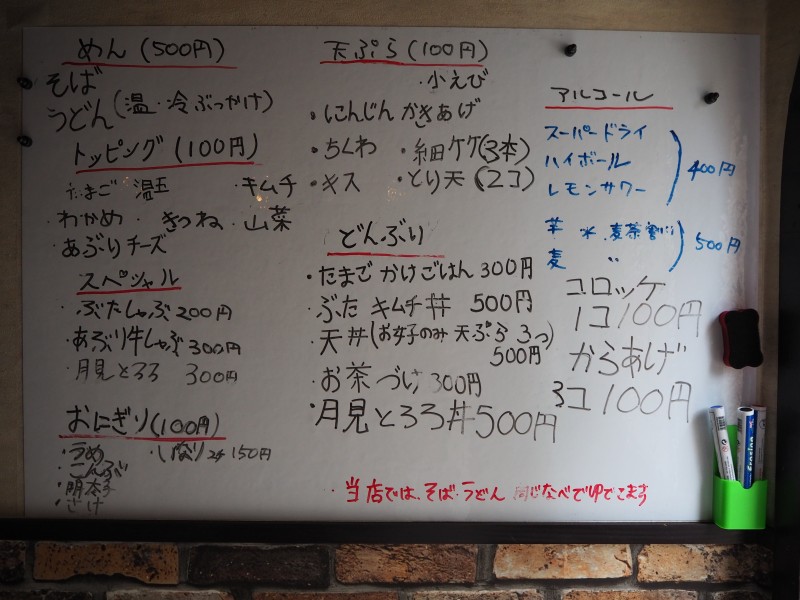 めん(500円)
そば
うどん(温・冷ぶっかけ)
トッピング(100円)
たまご 温玉 ・キムチ
・わかめ ・きつね ・山菜
・あぶりチーズ
スペシャル
・ぶたしゃぶ 200円
・あぶり牛しゃぶ 300円
・月見とろろ 300円
おにぎり(100円)
・うめ ・いなり2ケ150円
・こんぶ
・明太子
・さけ
天ぷら(100円)
・小えび
・にんじんかきあげ
・ちくわ ・細竹(3本)
・キス ・とり天(2コ)
どんぶり
・たまごかけごはん300円
・ぶたキムチ丼 500円
・天丼(お好みの天ぷら3つ)
500円
・お茶づけ300円
・月見とろろ丼500円
アルコール
スーパードライ
ハイボール
レモンサワー
400円
芋 水・麦茶割り
麦 〃
500円
コロッケ
1コ100円
からあげ
3コ100円
・当店では、そば・うどん 同じなべでゆでてます